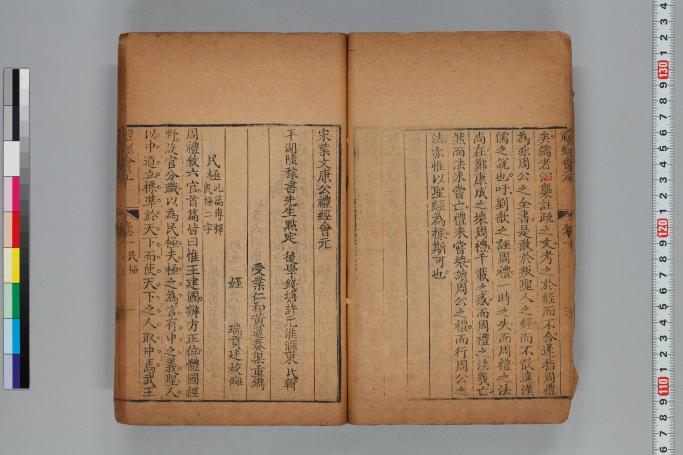 矣儒者沿襲註疏之文考之於經而不合遂指周禮
為非周公之全書是敢於叛聖人之經而不敢違漢
儒之說也吁劉歆之誣周禮一時之失而周禮之法
尚在鄭康成之壞周禮千載之惑而周禮之法幾亡
然而法未嘗亡禮未嘗壞讀周公之禮而行周公之
法亦惟以聖經為標斯可也
宋葉文康公禮經會元
平湖陸稼書先生點定 後學錢塘許元淮匯東氏輯
受業仁和黃暹春渠重鐫
姪 瑞貢廷校讎
民極 此篇專釋民極二字
周禮敘六官首篇皆曰惟王建國辨方正位體國經
野設官分職以為民極夫極之為言有中之義聖人
以中道立標準於天下而使天下之人取中焉武王
禮經會元 卷一 民極